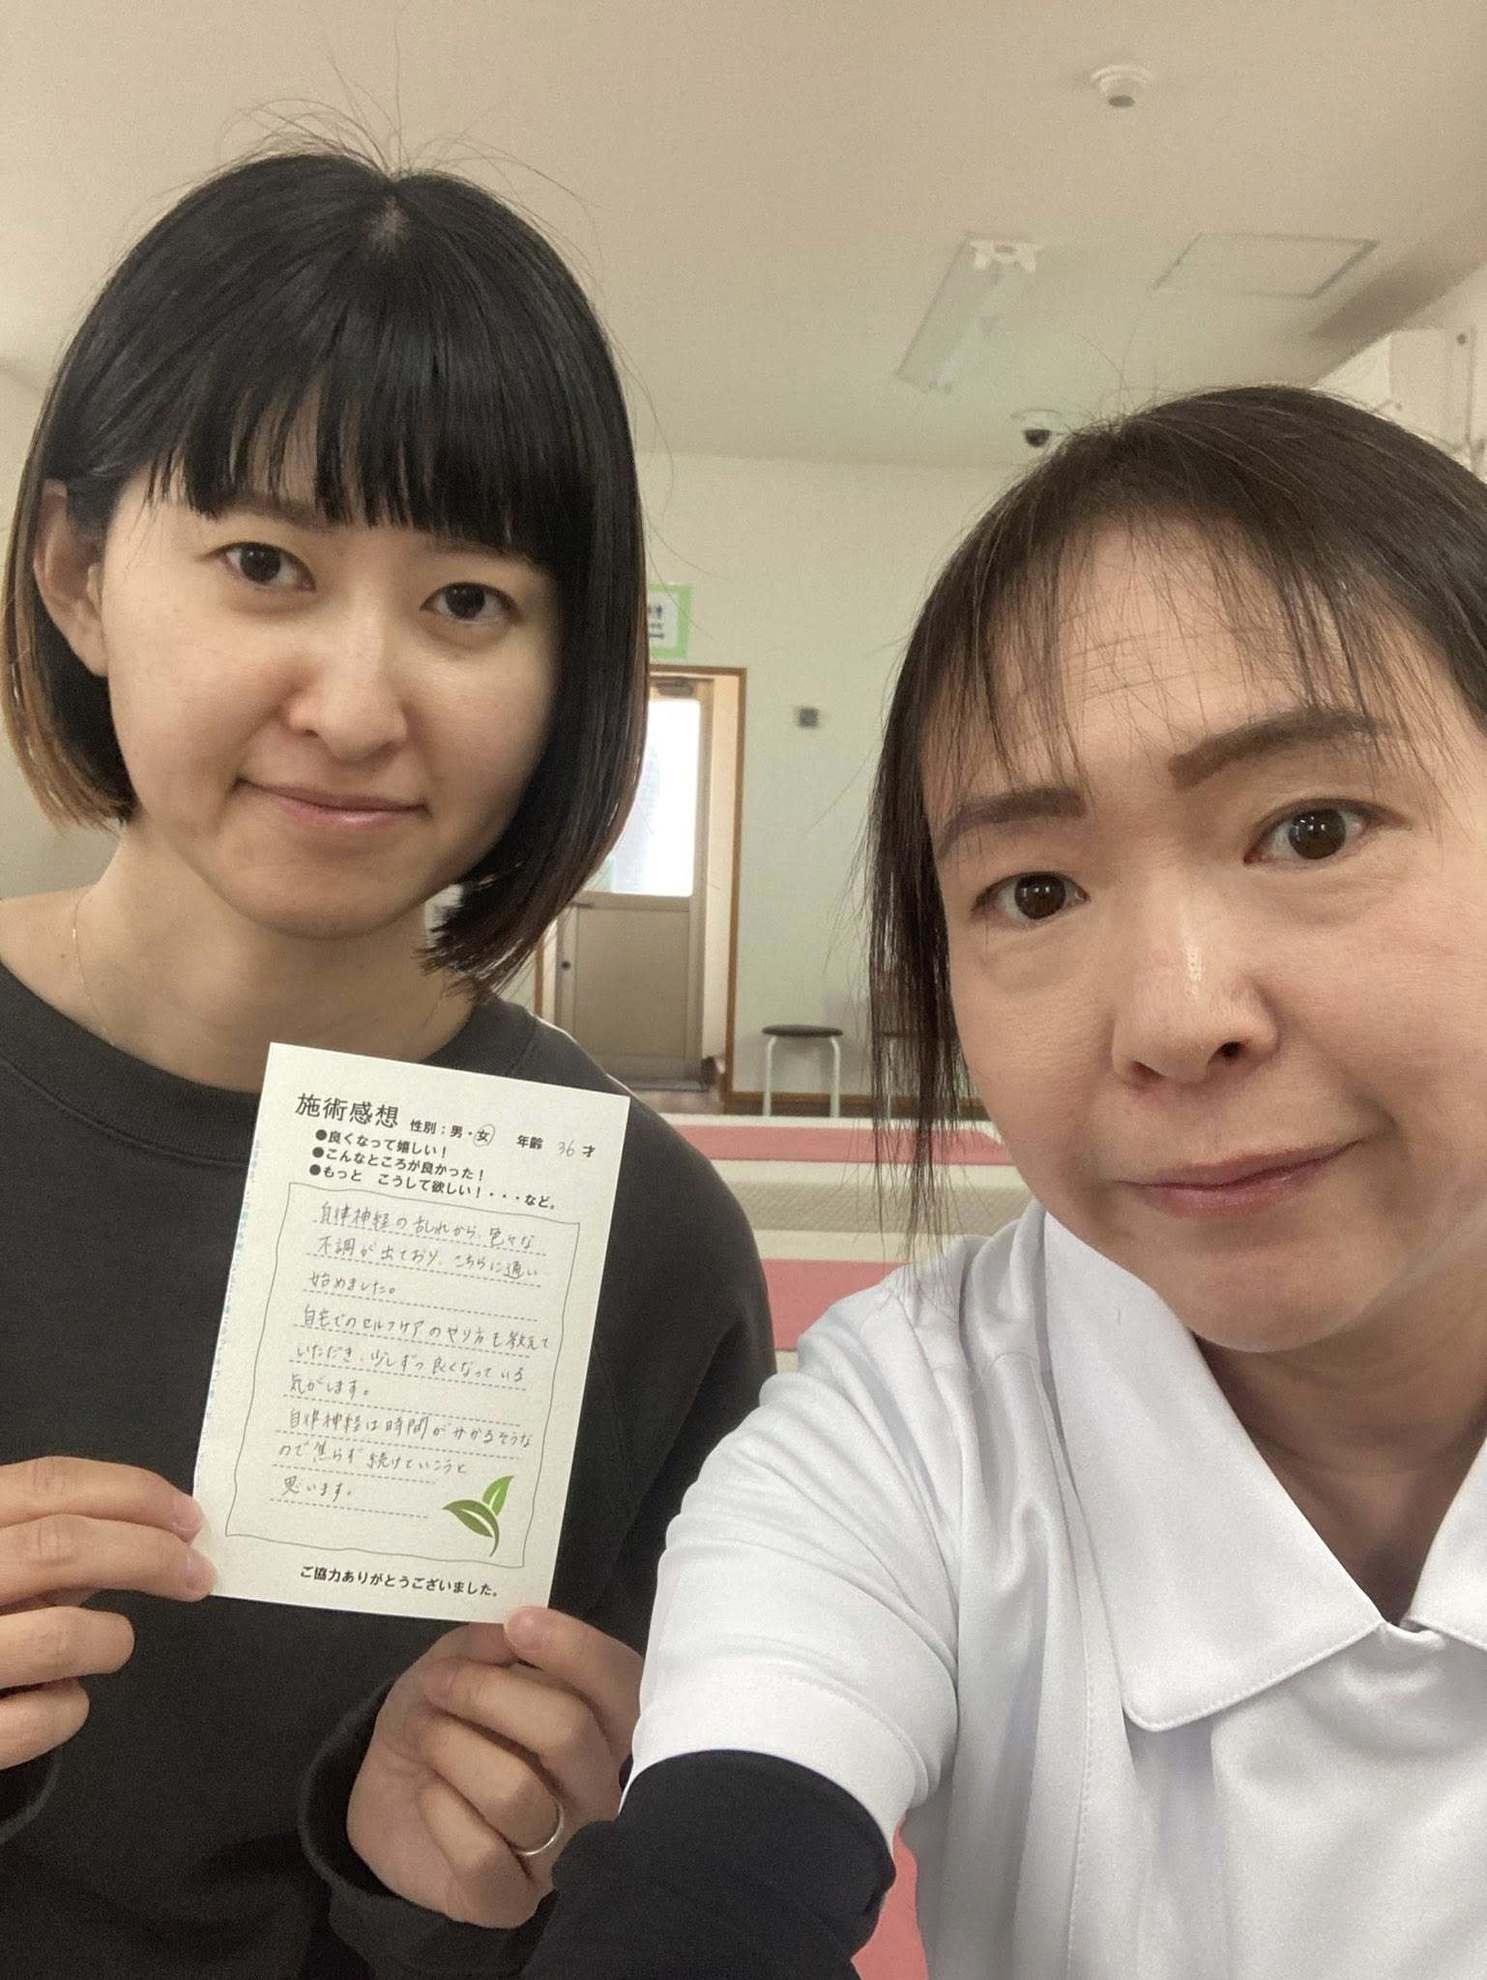 施術感想 性別：男・女 年齢 36 才
●良くなって嬉しい！
●こんなところが良かった！
●もっと こうして欲しい！・・・など。
自律神経の乱れから、色々な
不調が出ており、こちらに通い
始めました。
自宅でのセルフケアのやり方も教えて
いただき、少しずつ良くなっている
気がします。
自律神経は時間がかかるそうな
ので焦らず続けていこうと
思います。
ご協力ありがとうございました。